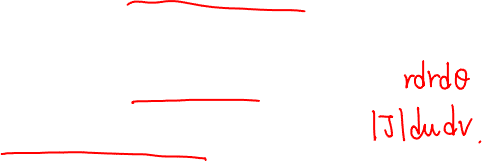 rdrdθ
|J|dudv.